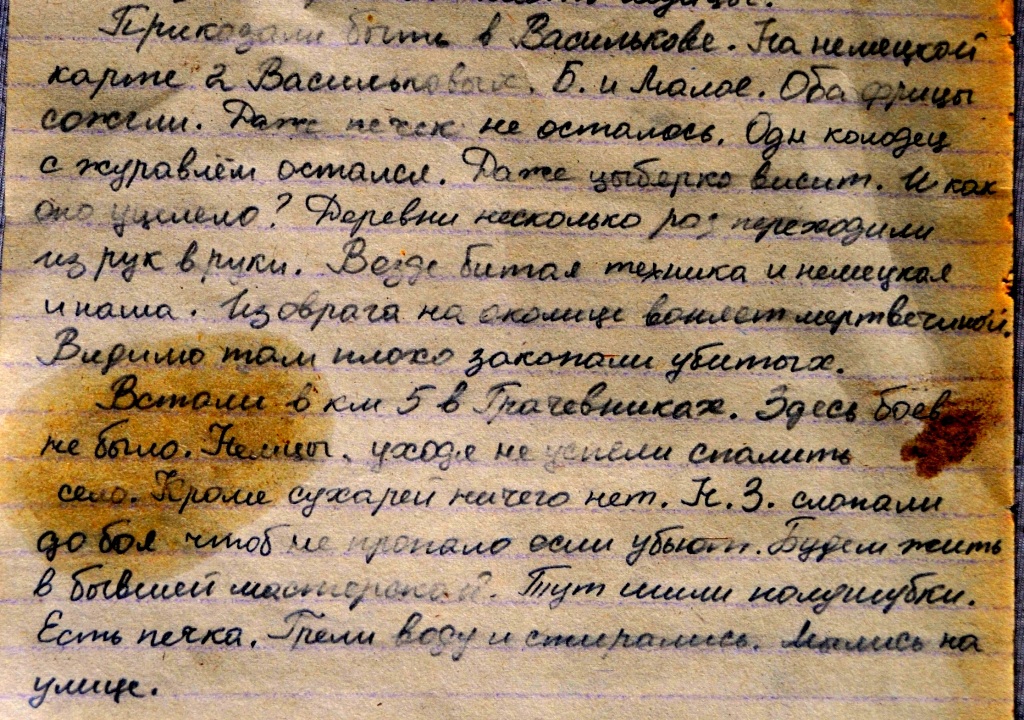 Приказали быть в Василькове. На немецкой
карте 2 Васильковых. Б. и Малое. Оба фрицы
сожгли. Даже печек не осталось. Одн колодец
с журавлём остался. Даже цыберко висит. И как
оно уцелело? Деревни несколько раз переходили
из рук в руки. Везде битая техника и немецкая
и наша. Из оврага на околице воняет мертвечиной.
Видимо там плохо закопали убитых.
Встали в км 5 в Грачевниках. Здесь боев
не было. Немцы, уходя не успели спалить
село. Кроме сухарей ничего нет. Н.З. слопали
до боя чтоб не пропало если убьют. Будем жить
в бывшей мастерской. Тут шили полушубки.
Есть печка. Грели воду и стирались. Мылись на
улице.